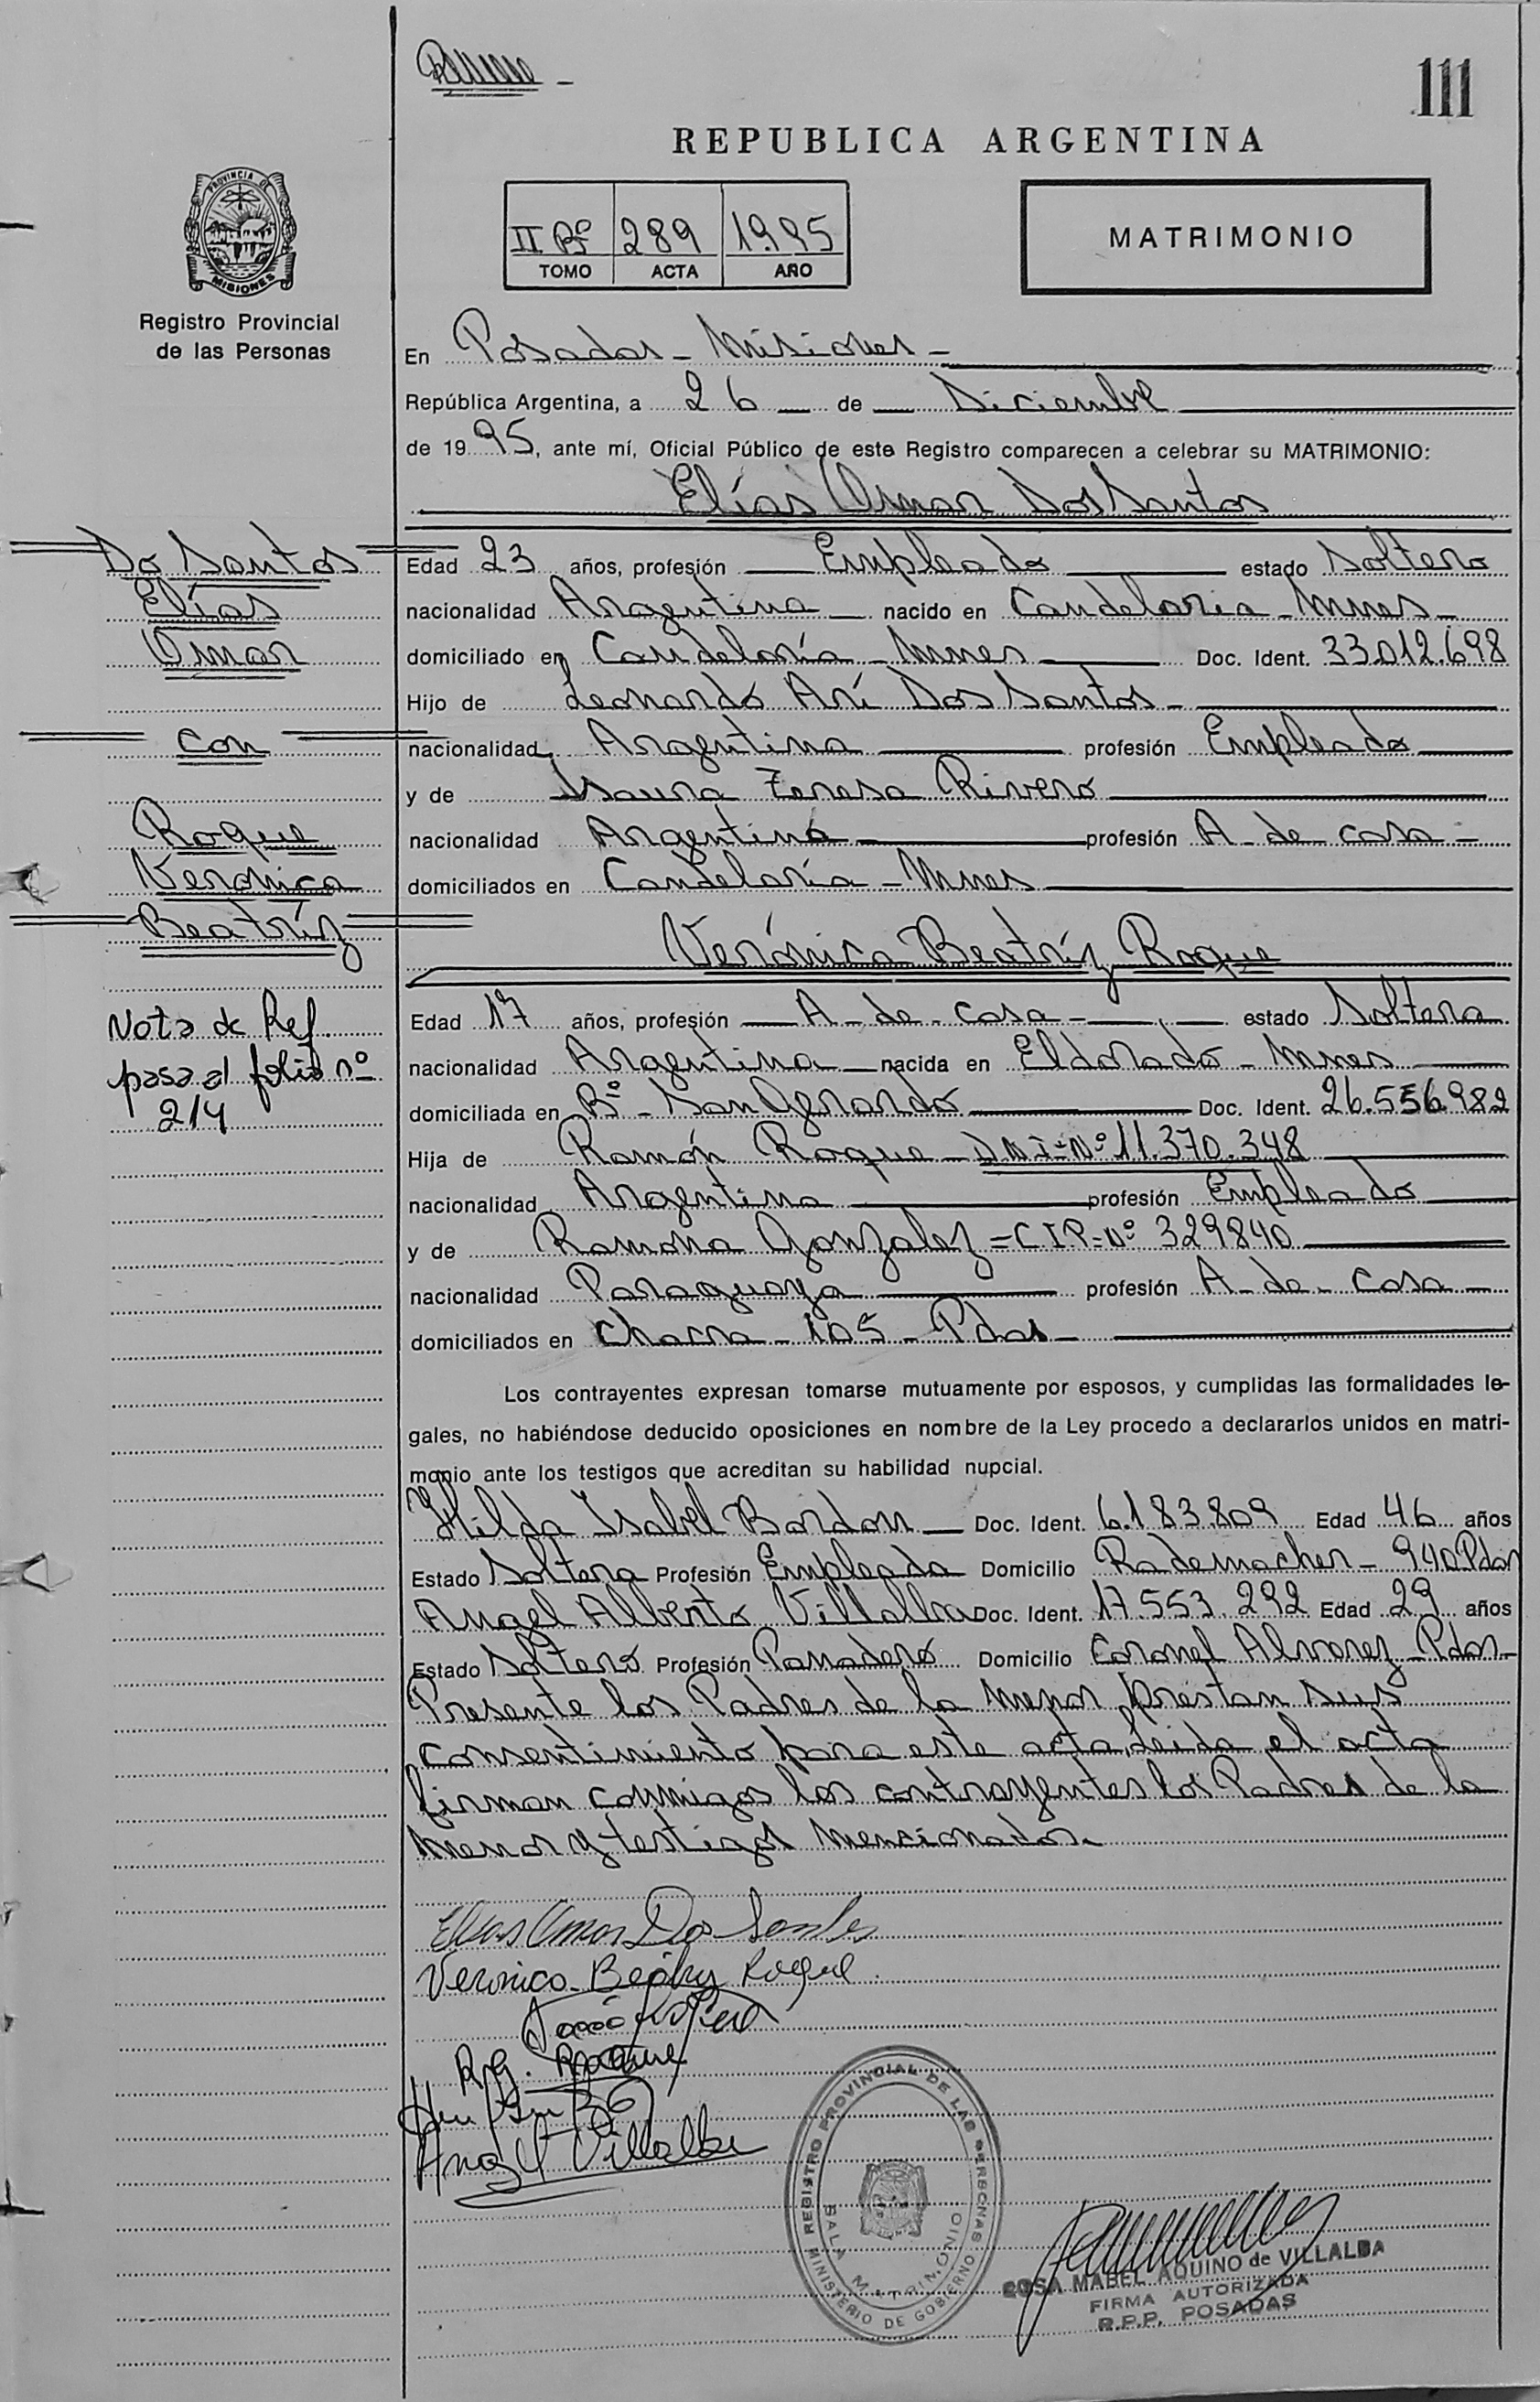 111
REPUBLICA ARGENTINA
PROVINCIA DE
MISIONES
Registro Provincial
de las Personas
II Bº 289 1995
TOMO ACTA AÑO
MATRIMONIO
En Posadas - Misiones -
República Argentina, a 26 de Diciembre
de 1995, ante mí, Oficial Público de este Registro comparecen a celebrar su MATRIMONIO:
Elías Omar Dos Santos
Do Santos
Elías
Omar
con
Roque
Verónica
Beatríz
Nota de Ref
pasa al folio nº
214
Edad 23 años, profesión Empleado estado Soltero
nacionalidad Argentina nacido en Candelaria - Mnes -
domiciliado en Candelaría - Mnes Doc. Ident. 33.012.698
Hijo de Leonardo Arí Dos Santos -
nacionalidad Argentina profesión Empleado
y de Isaura Teresa Rivero
nacionalidad Argentina profesión A - de casa -
domiciliados en Candelaría - Mnes
Verónica Beatríz Roque
Edad 17 años, profesión A - de - casa - estado Soltera
nacionalidad Argentina nacida en Eldorado - Mnes
domiciliada en Bº - San Gerardo Doc. Ident. 26.556.982
Hija de Ramón Roque - DNI - Nº 11.370.348
nacionalidad Argentina profesión Empleado
y de Ramona Gonzalez = C I P = Nº 329840
nacionalidad Paraguaya profesión A - de - casa -
domiciliados en Chacra - 105 - Pdas -
Los contrayentes expresan tomarse mutuamente por esposos, y cumplidas las formalidades le-
gales, no habiéndose deducido oposiciones en nombre de la Ley procedo a declararlos unidos en matri-
monio ante los testigos que acreditan su habilidad nupcial.
Hilda Isabel Bordon Doc. Ident. 6.183.809 Edad 46 años
Estado Soltera Profesión Empleada Domicilio Rademacher - 940 Pdas
Angel Alberto Villalba Doc. Ident. 17.553.292 Edad 29 años
Estado Soltero Profesión Panadero Domicilio Coronel Alvarez - Pdas -
Presente los Padres de la menor prestan sus
consentimiento para este acta, Leida el acta
firman conmigos los contrayentes los Padres de la
menor y testigos mencionados.
Elias Omar Dos Santos
Veronica Beatriz Roque
Roque
Angel Villalba
REGISTRO PROVINCIAL DE LAS PERSONAS
SALA MATRIMONIO
MINISTERIO DE GOBIERNO
ROSA MABEL AQUINO de VILLALBA
FIRMA AUTORIZADA
R.P.P. POSADAS